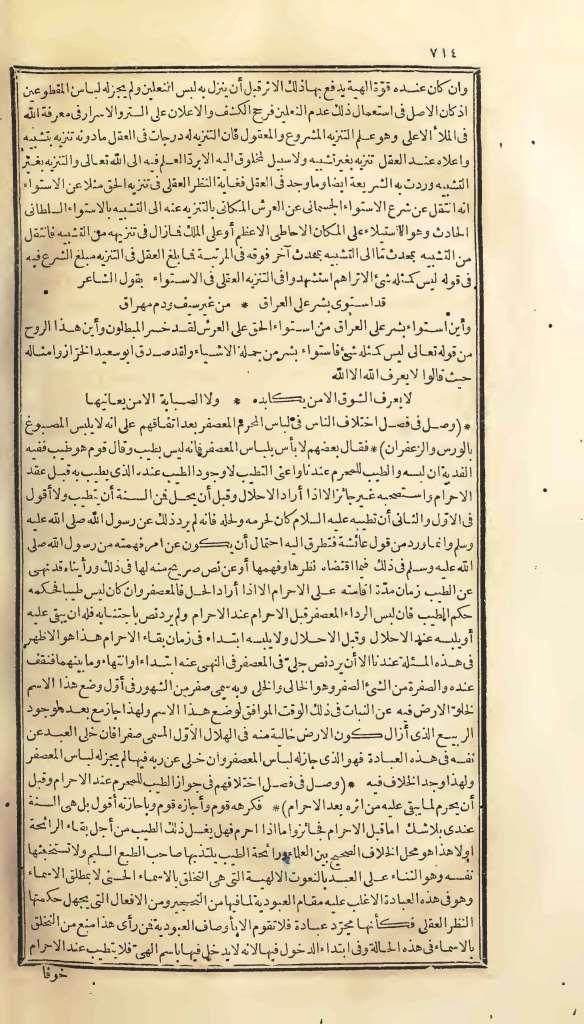 ٧١٤
وان كان عنده قوّة الهية يدفع بها ذلك الاثر قبل أن ينزل به لبس النعلين ولم يجز له لباس المقطوعين
اذ كان الاصل فى استعمال ذلك عدم النعلين فرجح الكشف والاعلان على الستر والاسرار فى معرفة الله
فى الملأ الاعلى وهو علم التنزيه المشروع والمعقول فان التنزيه له درجات فى العقل مادونه تنزيه بتشبيه
وأعلاه عند العقل تنزيه بغير تشبيه ولا سبيل لمخلوق اليه الا بردّ العلم فيه الى الله تعالى والتنزيه بغير
التشبيه وردت به الشريعة ايضا وما وجد فى العقل فغاية النظر العقلى فى تنزيه الحق مثلا عن الاستواء
انه انتقل عن شرع الاستواء الجسمانى عن العرش المكانى بالتنزيه عنه الى التشبيه بالاستواء السلطانى
الحادث وهو الاستيلاء على المكان الاحاطى الاعظم أو على الملك فازال فى تنزيهه من التشبيه فانتقل
من التشبيه بمحدث مّا الى التشبيه بمحدث آخر فوقه فى المرتبة فما بلغ العقل فى التنزيه مبلغ الشرع فيه
فى قوله ليس كمثله شئ الا تراهم استشهدوا فى التنزيه العقلى فى الاستواء بقول الشاعر
قد استوى بشر على العراق * من غير سيف ودم مهراق
وأين استواء بشر على العراق من استواء الحق على العرش لقد خسر المبطلون وأين هذا الروح
من قوله تعالى ليس كمثله شئ فاستواء بشر من جملة الاشياء ولقد صدق ابو سعيد الخرّاز وامثاله
حيث قالوا لا يعرف الله الا الله
لا يعرف الشوق الا من يكابده * ولا الصبابة الا من يعانيها
* (وصل فى فصل اختلاف الناس فى لباس المحرم المعصفر بعد اتفاقهم على انه لا يلبس المصبوغ
بالورس والزعفران) * فقال بعضهم لا بأس بلباس المعصفر فانه ليس بطيب وقال قوم هو طيب ففيه
الفدية ان لبسه والطيب للمحرم عندنا واعنى التطيب لا وجود الطيب عنده الذى يطيب به قبل عقد
الاحرام واستصحبه غير جائز الا اذا أراد الاحلال وقبل أن يحل فمن السنة أن يتطيب ولا أقول
فى الاوّل والثانى أن تطيبه عليه السلام كان لحرمه ولحله فانه لم يرد ذلك عن رسول الله صلى الله عليه
وسلم وانما ورد من قول عائشة فتطرق اليه احتمال أن يكون عن امر فهمته من رسول الله صلى
الله عليه وسلم فى ذلك فيما اقتضاه نظرها وفهمها أو عن نص صريح منه لها فى ذلك ورأيناه قد نهى
عن الطيب زمان مدّة اقامته على الاحرام الا اذا أراد الحل فالمعصفر وان كان ليس طيبا فحكمه
حكم الطيب فان لبس الرداء المعصفر قبل الاحرام عند الاحرام ولم يرد نص باجتنابه فله ان يبقى عليه
أو يلبسه عند الاحلال وقبل الاحلال ولا يلبسه ابتداء فى زمان بقاء الاحرام هذا هو الاظهر
فى هذه المسئلة عندنا الا أن يرد نص جلىّ فى المعصفر فى النهى عنه ابتداء وانتهاء وما بينهما فنقف
عنده والصفرة من الشئ الصفر وهو الخالى والخلى وبه سمى صفر من الشهور فى أوّل وضع هذا الاسم
لخلوّ الارض فيه عن النبات فى ذلك الوقت الموافق لوضع هذا الاسم ولهذا جاز مع بعد موجود
الربيع الذى أزال كون الارض خالية منه فى الهلال الاوّل المسمى صفرا فان خلى العبد عن
نفسه فى هذه العبادة فهو الذى جاز له لباس المعصفر وان خلى عن ربه فيها لم يجز له لباس المعصفر
ولهذا وجد الخلاف فيه * (وصل فى فصل اختلافهم فى جواز الطيب للمحرم عند الاحرام وقبل
أن يحرم لما يبقى عليه من اثره بعد الاحرام) * فكرهه قوم وأجازه قوم وباجازته أقول بل هى السنة
عندى بلا شك اما قبل الاحرام فجائز واما اذا احرم فهل يغسل ذلك الطيب من أجل بقاء الرائحة
او لا هذا هو محل الخلاف الصحيح بين العلماء ورائحة الطيب يلتذ بها صاحب الطبع السليم ولا تستخبثها
نفسه وهو الثناء على العبد بالنعوت الالهية التى هى التخلق بالاسماء الحسنى لا بمطلق الاسماء
وهو فى هذه العبادة الاغلب عليه مقام العبودية لما فيها من التحجير ومن الافعال التى يجهل حكمتها
النظر العقلى فكأنها مجرّد عبادة فلا تقوم الا بأوصاف العبودية فمن رأى هذا منع من التخلق
بالاسماء فى هذه الحالة وفى ابتداء الدخول فيها لانه لا يدخل فيها باسم الهىّ فلا يتطيب عند الاحرام
خوفا